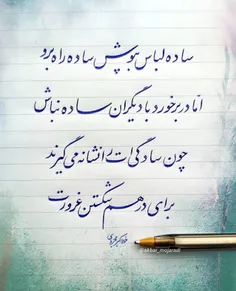 ساده لباس بپوش ساده راه برو
امّا در برخورد با دیگران ساده نباش
چون سادگی ات را نشانه می گیرند
برای درهم شکستن غرورت